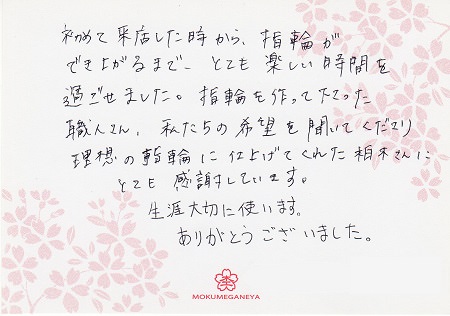 初めて来店した時から、指輪が
できよがるまで、とても楽しい時間を
過ごせました。指輪を作って下さった
職人さん、私たちの希望を聞いてくださり
理想の指輪に仕上げてくれた柏木さんに
とても感謝しています。
生涯大切に使います。
ありがとうございました。
MOKUMEGANEYA